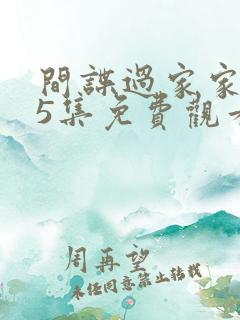 間諜過家家
5集免費觀看
周再望
未经同意禁止转载